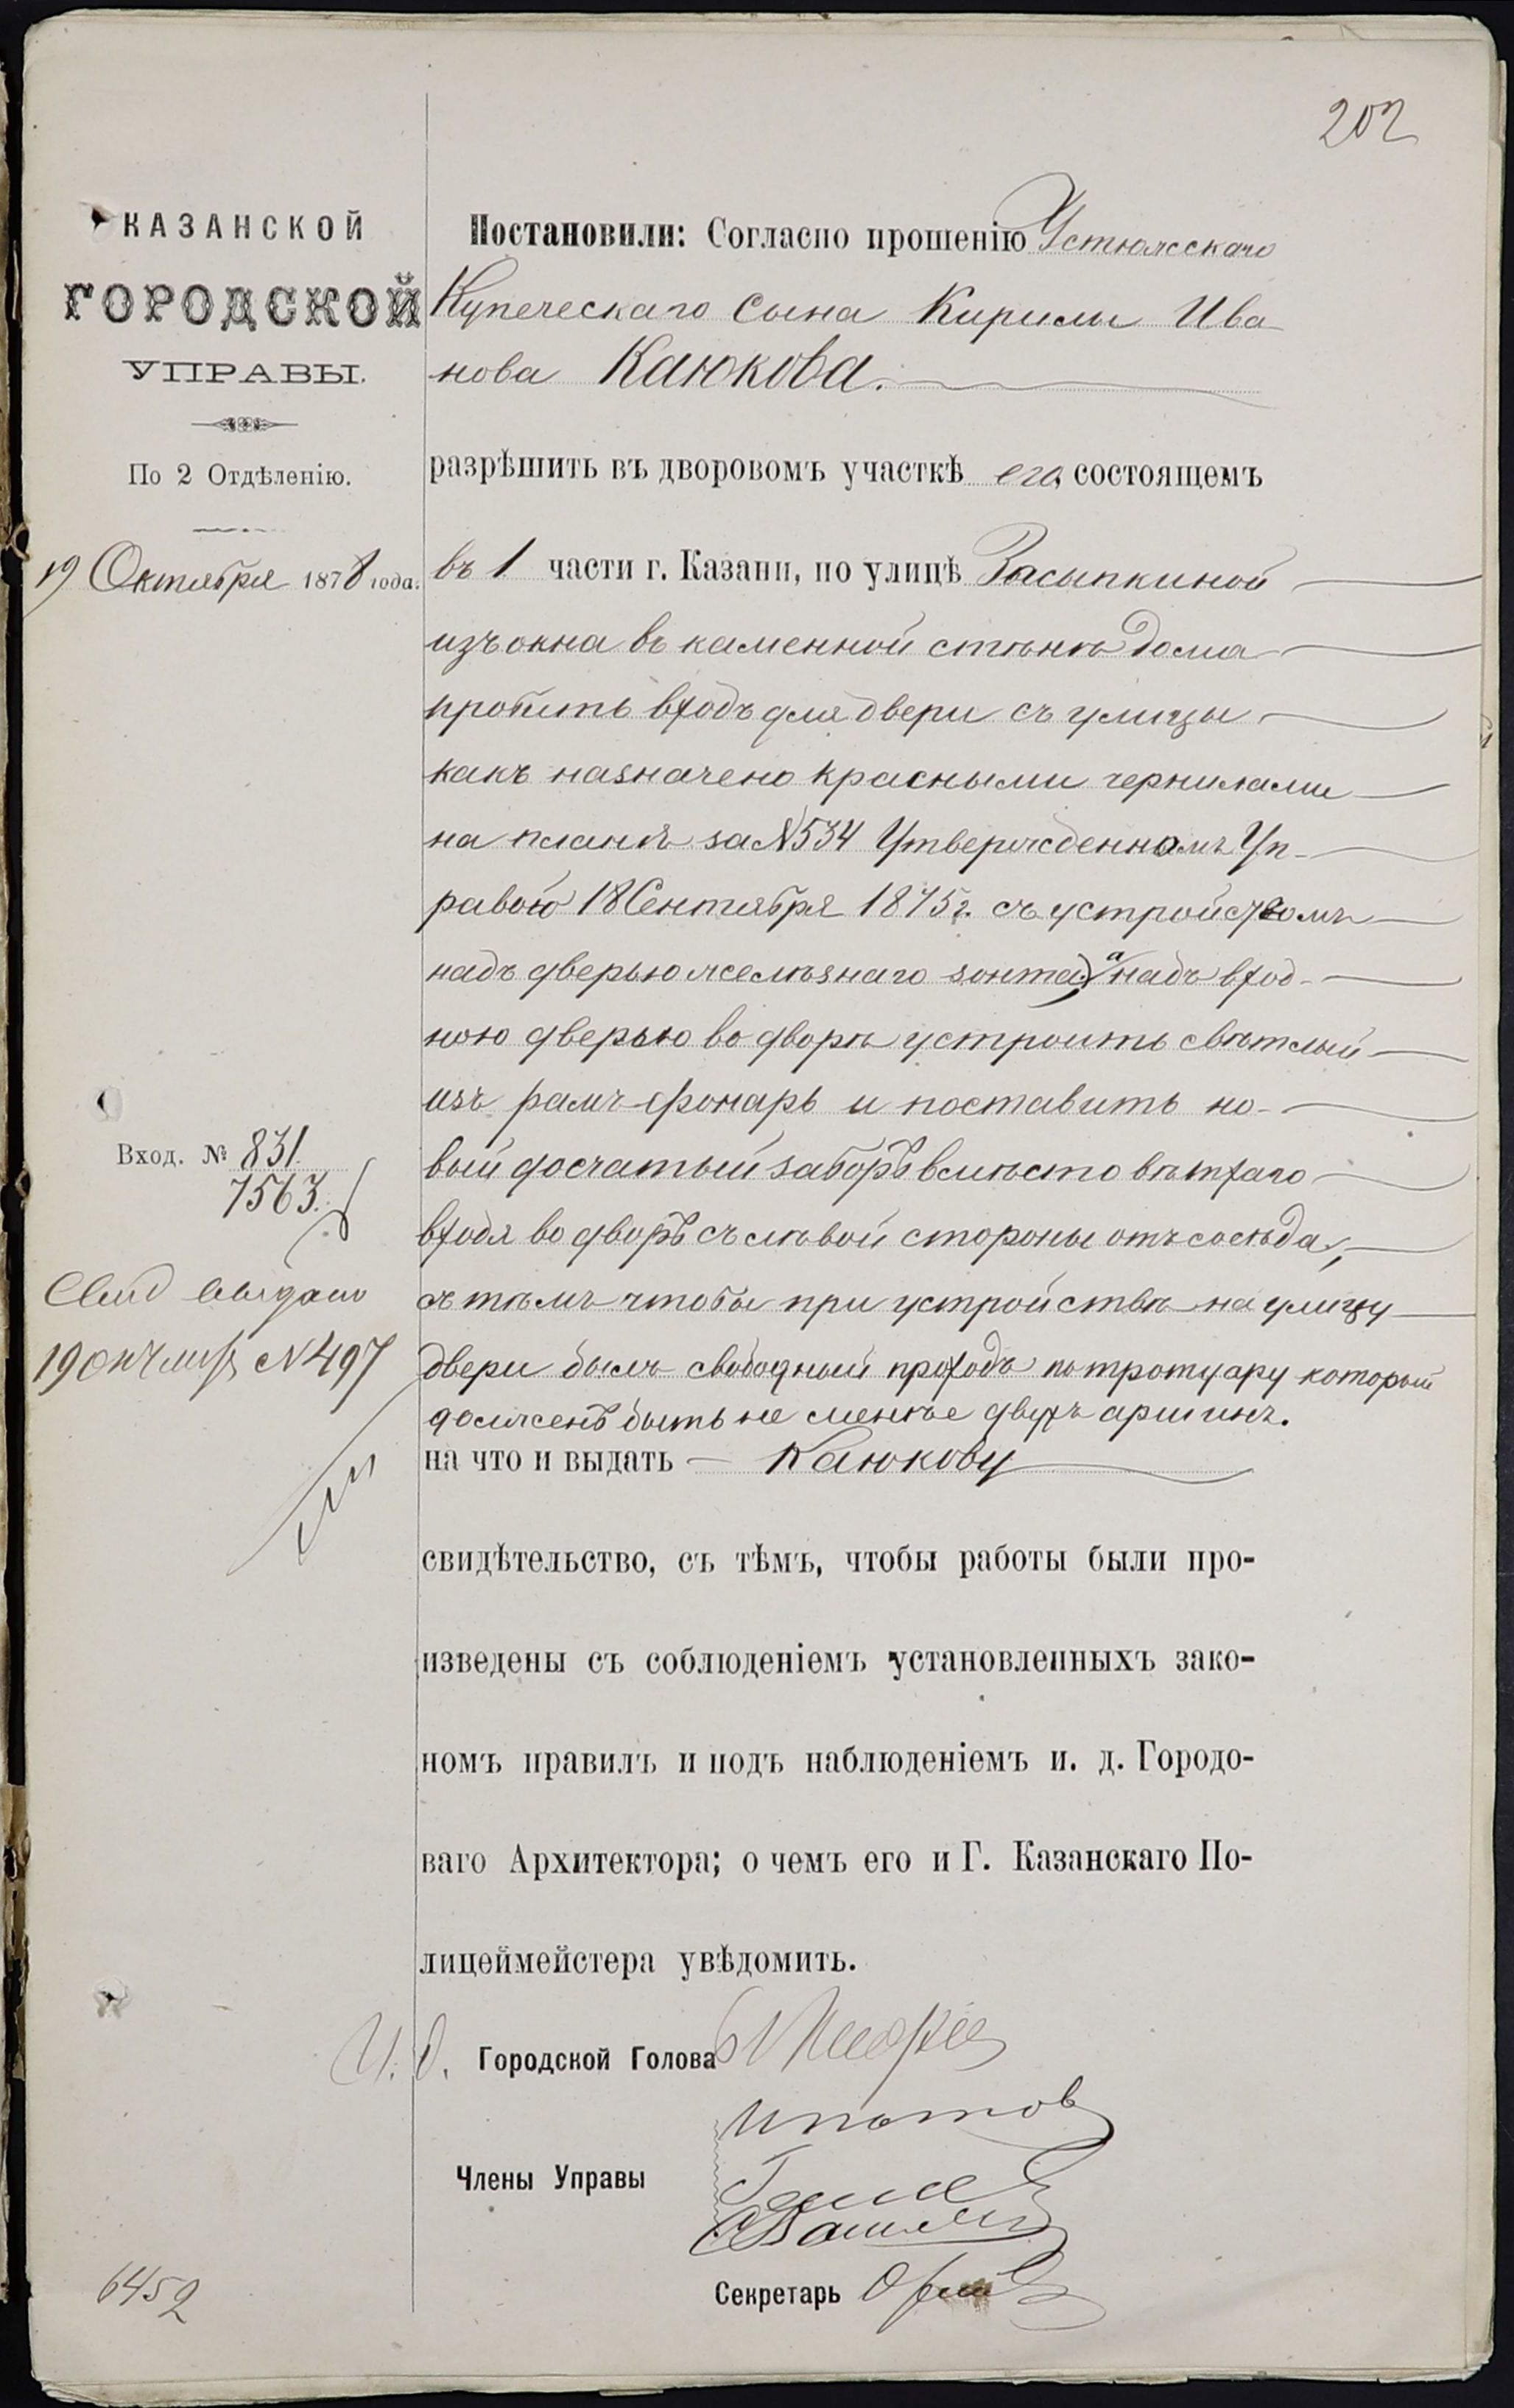 202
КАЗАНСКОЙ
ГОРОДСКОЙ
УПРАВЫ.
По 2 Отдѣленію.
19 Октября 1878 года.
Вход. № 831
7563.
Свид выдано
19 октября № 497
Постановили: Согласно прошенію Устюжскаго
Купеческаго сына Кирилы Ива-
нова Каюкова.
разрѣшить въ дворовомъ участкѣ его, состоящемъ
въ 1 части г. Казани, по улицѣ Засыпкиной
изъ окна въ каменной стѣнѣ дома
пробить входъ для двери съ улицы
какъ назначено красными чернилами
на планѣ за № 534 Утвержденномъ Уп-
равою 18 Сентября 1875 г. съ устройствомъ
надъ дверью желѣзнаго зонта, а надъ вход-
ною дверью во дворѣ устроить свѣтлый
изъ рамъ фонарь и поставить но-
вый досчатый заборъ вмѣсто ветхаго
входя во дворъ съ лѣвой стороны отъ сосѣда,
съ тѣмъ чтобы при устройствѣ на улицу
двери былъ свободный проходъ по тротуару который
долженъ быть не менѣе двухъ аршинъ.
на что и выдать — Каюкову
свидѣтельство, съ тѣмъ, чтобы работы были про-
изведены съ соблюденіемъ установленныхъ зако-
номъ правилъ и подъ наблюденіемъ и. д. Городо-
ваго Архитектора; о чемъ его и Г. Казанскаго По-
лицеймейстера увѣдомить.
И. д. Городской Голова
Ипатов
Члены Управы
Секретарь
6452